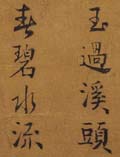 玉過溪頭
春碧水流